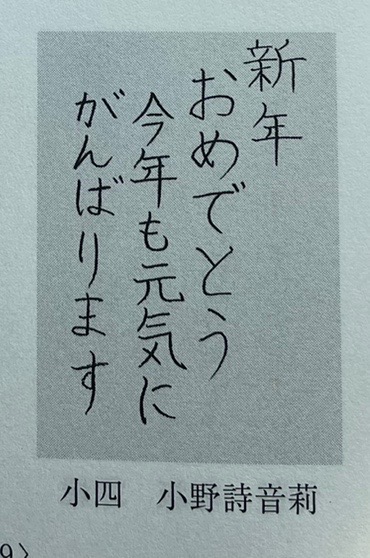 新年
おめでとう
今年も元気に
がんばります
小四　小野詩音莉
9〉